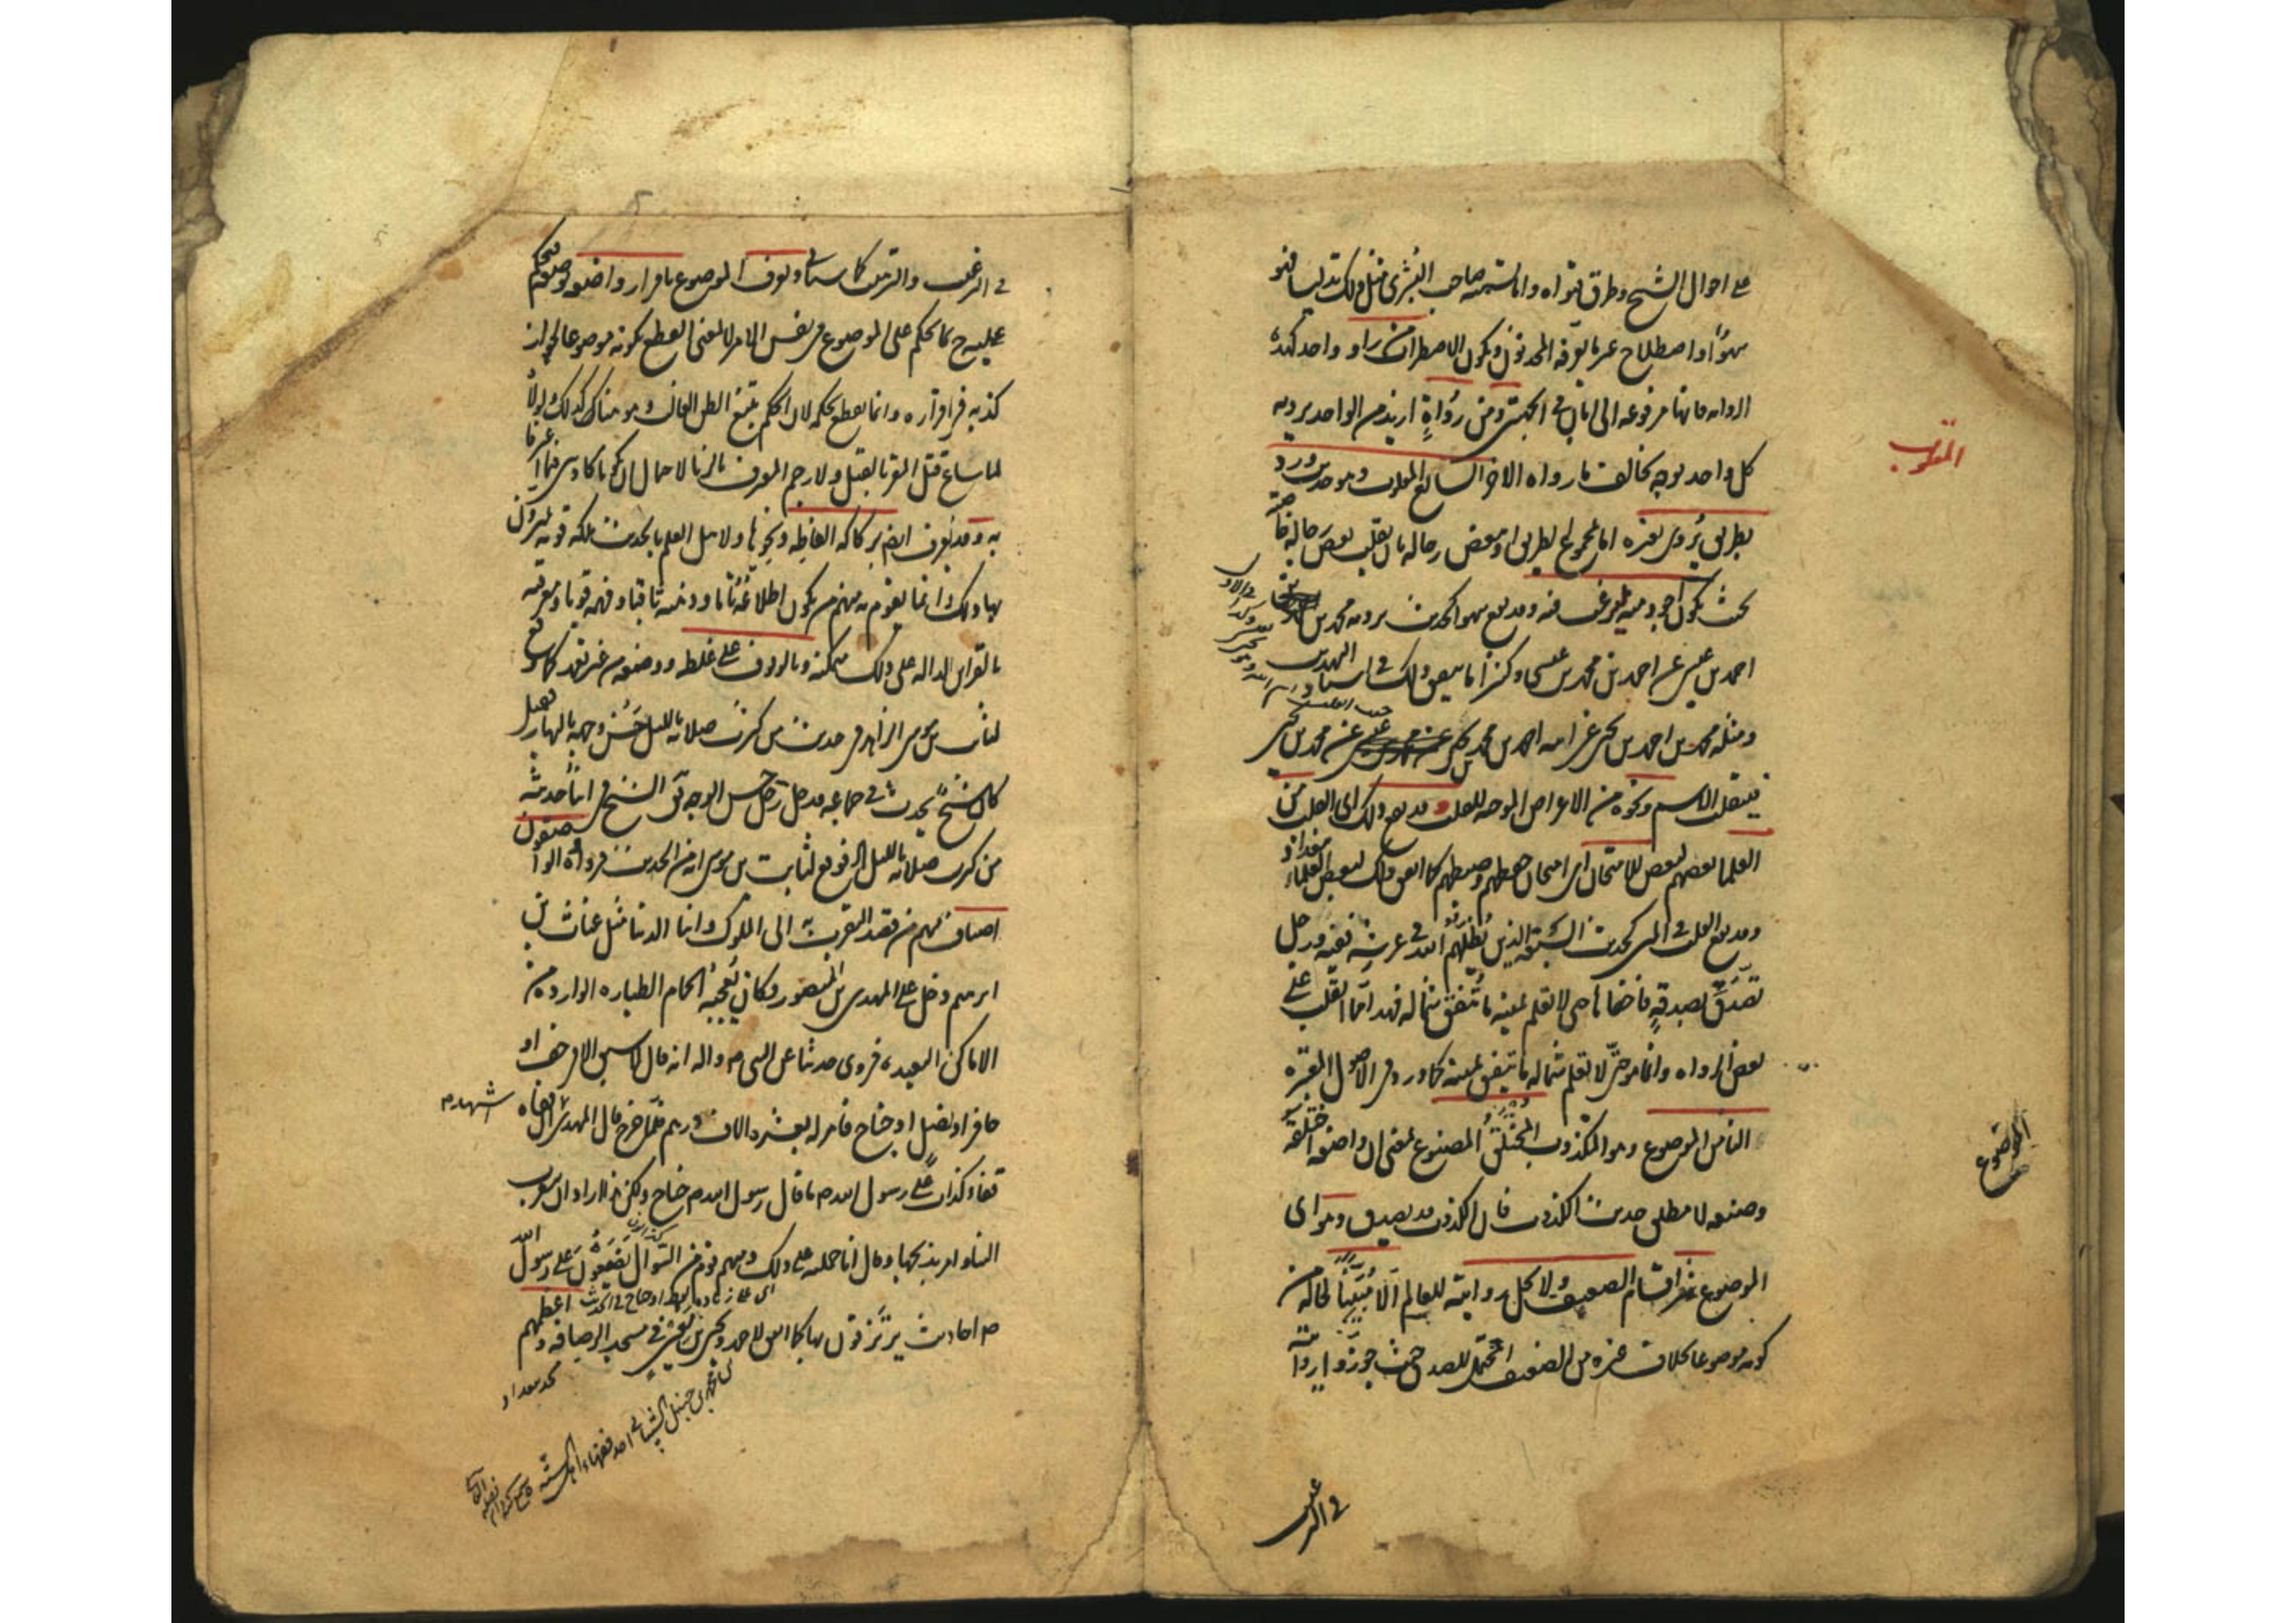 على احوال الشيخ وطرق فتواه واما تسميته صاحب البشرى مثل ذلك تدليسا فهو
سهو او اصطلاح غير ما يعرفه المحدثون ويكون الاضطراب من راو واحد كهذه
الرواية فانها مرفوعة الى ابان في الجميع ومن رواة ازيد من الواحد يرويه
كل واحد بوجه يخالف ما رواه الاخر السابع المقلوب وهو حديث ورد
المقلوب
بطريق يروى بغيره اما مجموع الطريق او بعض رجاله بان يقلب بعض رجاله خاصة
بحيث يكون اجود منه ليرغب فيه وقد يقع سهوا كحديث يرويه محمد بن
احمد بن عيسى عن احمد بن محمد بن عيسى وكثيرا ما يتفق ذلك في اسناد التهذيب
ومثله محمد بن احمد بن يحيى عن ابيه احمد بن محمد بن يحيى عن محمد بن يحيى
فينقلب الاسم ونحوه من الاغراض الموجبة للقلب وقد يقع ذلك اى القلب من
العلماء بعضهم لبعض للامتحان اى امتحان حفظهم وضبطهم كما اتفق ذلك لبعض العلماء
ببغداد
وقد يقع القلب في المتن كحديث السبعة الذين يظلهم الله في عرشه ففيه ورجل
تصدق بصدقة فاخفاها حتى لا تعلم يمينه ما تنفق شماله فهذا مما انقلب على
بعض الرواة وانما هو حتى لا تعلم شماله ما تنفق يمينه كما ورد في الاصول المعتبرة
الثامن الموضوع وهو المكذوب المختلق المصنوع بمعنى ان واضعه اختلقه
الموضوع
وصنعه لا مطلق حديث الكذوب فان الكذوب قد يصدق وهو اى
الموضوع شر اقسام الضعيف ولا يحل روايته للعالم الا مبينا لحاله من
كونه موضوعا بخلاف غيره من الضعيف المحتمل للصدق حيث جوزوا روايته
في الترغيب
في الترغيب والترهيب كما سيأتي ويعرف الموضوع باقرار واضعه بوضعه فيحكم
عليه ح بما يحكم على الموضوع في نفس الامر لا بمعنى القطع بكونه موضوعا لجواز
كذبه في اقراره وانما يقطع بحكمه لان الحكم يتبع الظن الغالب وهو هنا كذلك ولولاه
لما ساغ قتل المقر بالقتل ولا رجم المعترف بالزنا لاحتمال ان يكونا كاذبين فيما اعترفا
به وقد يعرف ايضا بركاكة الفاظه ونحوها ولاهل العلم بالحديث ملكة قوية يميزون
بها ذلك وانما يقوم به منهم من يكون اطلاعه تاما وذهنه ثاقبا وفهمه قويا ومعرفته
بالقراين الدالة على ذلك متمكنة وبالوقوف على غلطه ووضعه من غير تعمد كما وقع
لثابت بن موسى الزاهد في حديث من كثرت صلاته بالليل حسن وجهه بالنهار فقيل
كان شيخ يحدث في جماعة فدخل رجل حسن الوجه فقال الشيخ في اثناء حديثه
من كثرت صلاته بالليل الخ فوقع لثابت بن موسى انه من الحديث فرواه والواضعون
اصناف منهم من قصد التقرب به الى الملوك وابناء الدنيا مثل غياث بن
ابرهيم دخل على المهدى بن المنصور وكان يعجبه الحمام الطيارة الواردة من
الاماكن البعيدة فروى حديثا عن النبي ص واله انه قال لا سبق الا في خف او
حافر او نصل او جناح فامر له بعشرة الاف درهم فلما خرج قال المهدى اشهد ان قفاه
اشهد
قفاء كذاب على رسول الله ص ما قال رسول الله ص جناح ولكن هذا اراد ان يتقرب
الينا وامر بذبحها وقال انا حملته على ذلك ومنهم قوم من السؤال يضعون على رسول الله
اى على زيادة لفظ او جناح في الحديث
ص احاديث يرتزقون بها كما اتفق لاحمد ويحيى بن معين في مسجد الرصافة ومنهم اعظمهم
محلة ببغداد
محمد بن حنبل الشيباني احد فقهاء اهل السنة